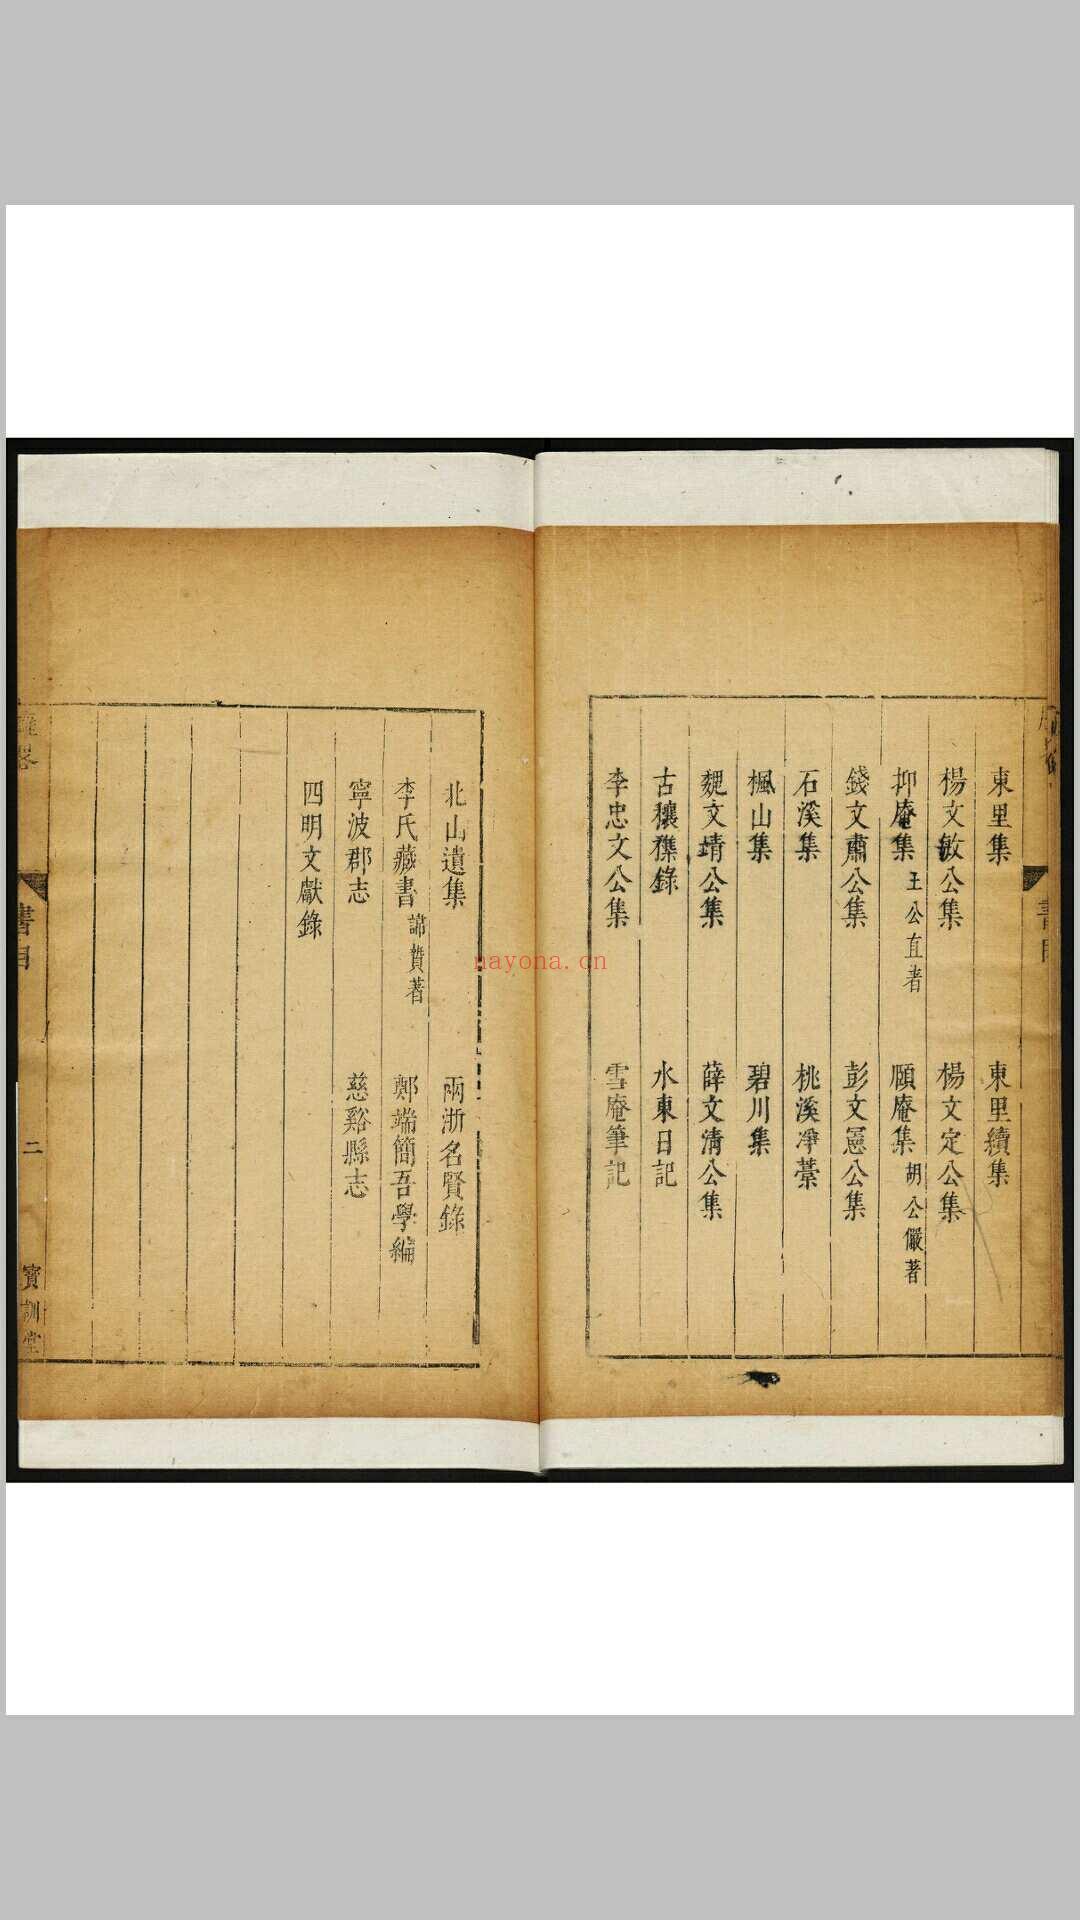 東里集　東里續集
楊文敏公集　楊文定公集
抑庵集 王公直著　頤庵集 胡公儼著
錢文肅公集　彭文憲公集
石溪集　桃溪凈藁
楓山集　碧川集
魏文靖公集　薛文清公集
古穰襍錄　水東日記
李忠文公集　雪庵筆記
北山遺集　兩浙名賢錄
李氏藏書 諱贄著　鄭端簡吾學編
寧波郡志　慈谿縣志
四明文獻錄
書目
二
寶訓堂
nayona.cn